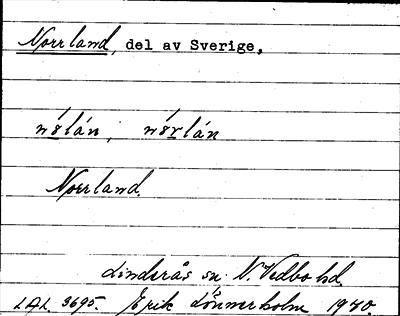 Norrland, del av Sverige,
Norrland.
Linderås sn. N. Vedbo hd.
LAL. 3695. Erik Lönnerholm 1940.